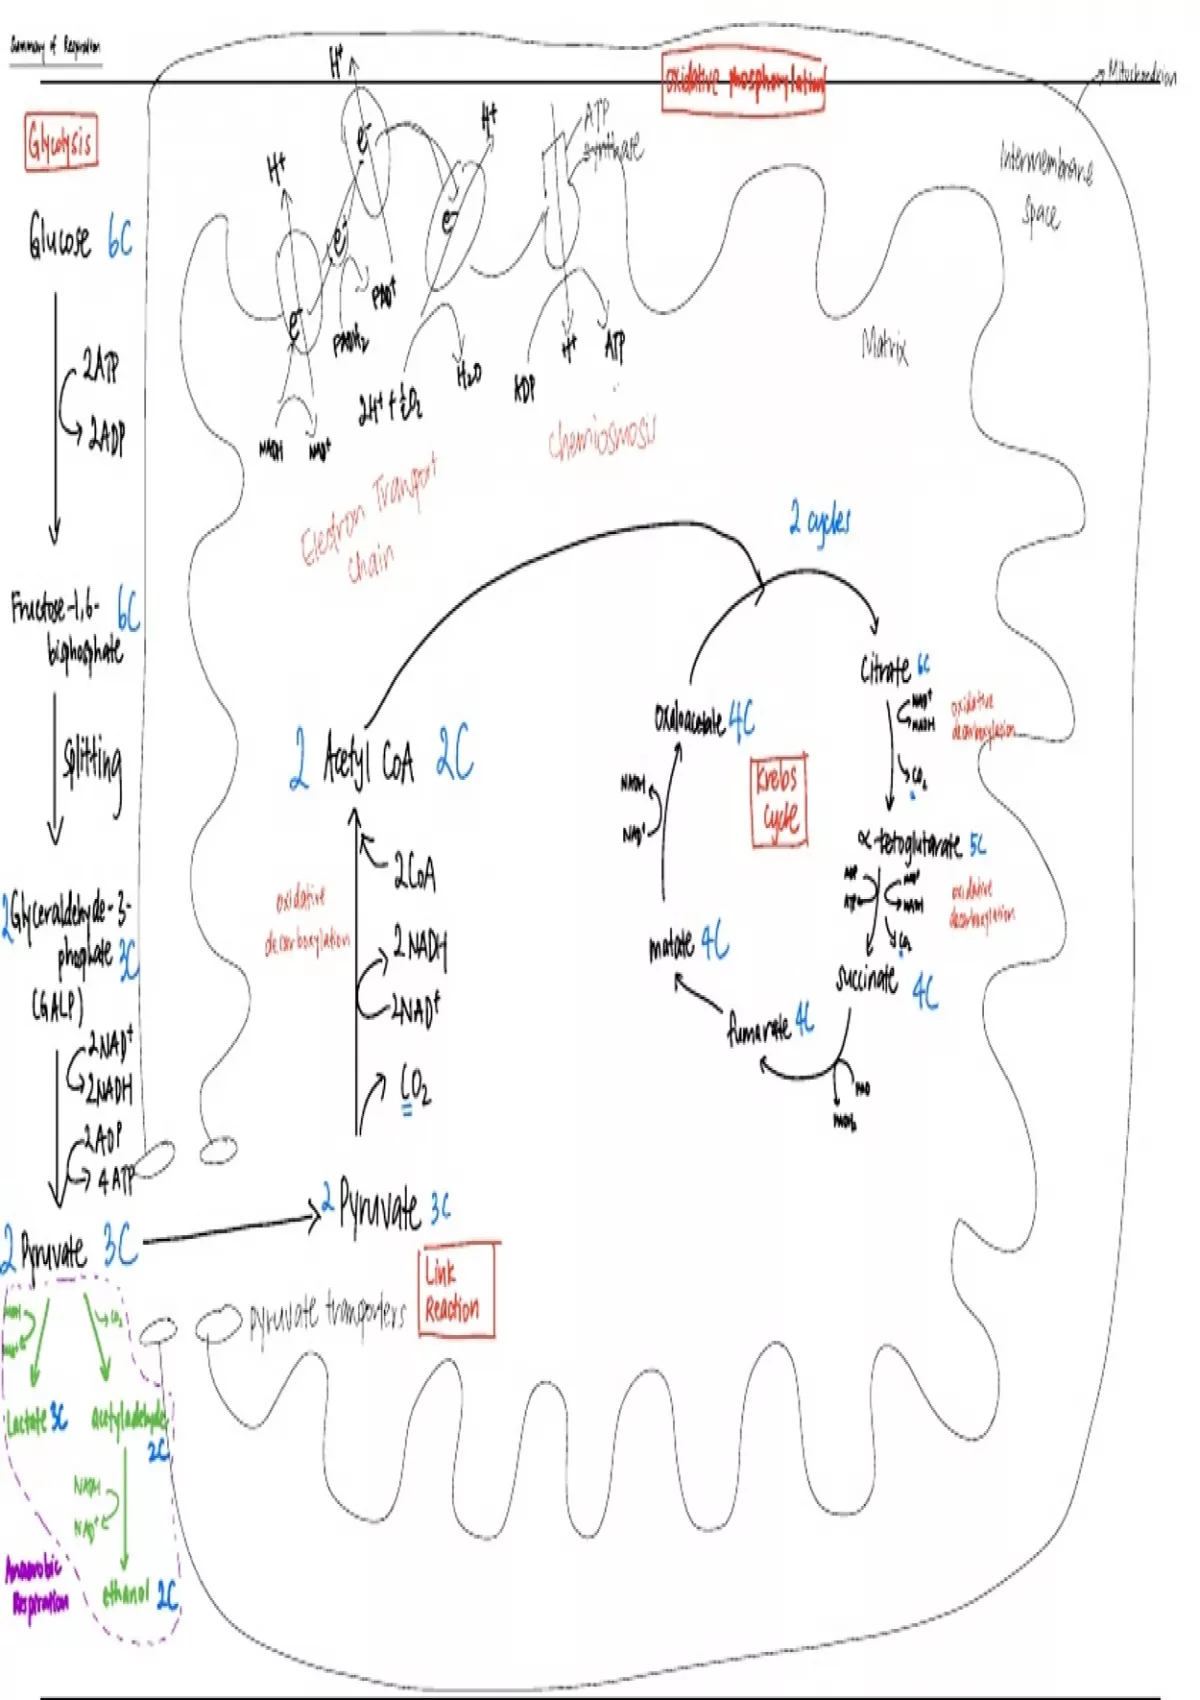 Summary of Respiration
oxidative phosphorylation
Mitochondrion
Glycolysis
Intermembrane
Space
Matrix
H+
H+
H+
e-
e-
e-
e-
ATP
synthase
FAD+
FADH2
NADH
NAD+
2H+ + ½O2
H2O
ADP
H+
ATP
Electron Transport
Chain
Chemiosmosis
Glucose 6C
2ATP
2ADP
Fructose-1,6- 6C
bisphosphate
splitting
2 Glyceraldehyde-3-
phosphate 3C
(GALP)
2NAD+
2NADH
2ADP
4ATP
2 Pyruvate 3C
2 Pyruvate 3C
Link
Reaction
pyruvate transporters
CO2
2NAD+
2 NADH
2CoA
oxidative
decarboxylation
2 Acetyl CoA 2C
2 cycles
Krebs
cycle
oxaloacetate 4C
citrate 6C
NAD+
NADH
oxidative
decarboxylasion
CO2
α-tetoglutarate 5C
ADP
ATP
NAD+
NADH
oxidative
decarboxylation
CO2
succinate 4C
FAD
FADH2
fumarate 4C
malate 4C
NADH
NAD+
NADH
NAD+
CO2
Lactate 3C
acetyladehyde
2C
NADH
NAD+
ethanol 2C
Anaerobic
Respiration